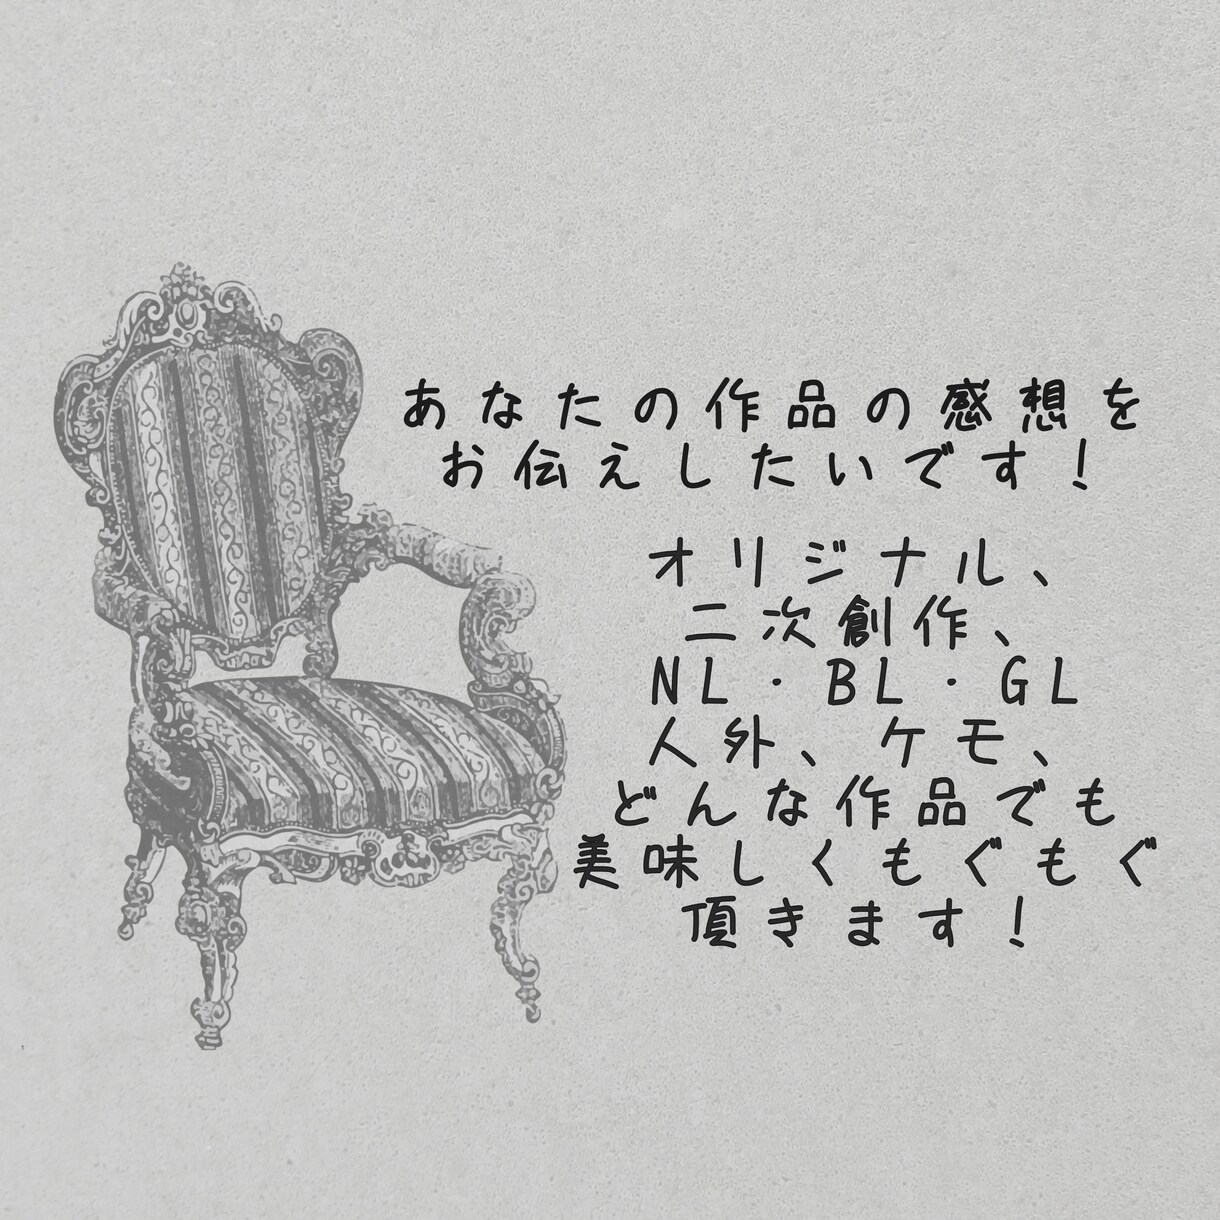 あなたの作品の感想を
お伝えしたいです！
オリジナル、
二次創作、
NL・BL・GL
人外、ケモ、
どんな作品でも
美味しくもぐもぐ
頂きます！